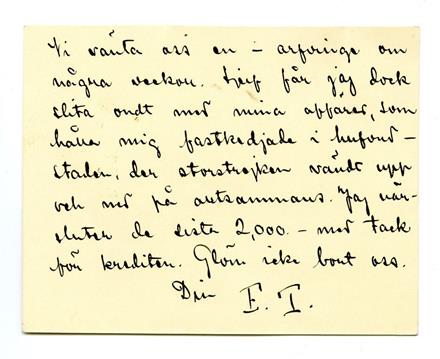 Vi vänta oss en – arfvinge om
några veckor. Sjelf får jag dock
slita ondt med mina affärer, som
hålla mig fastkedjade i hufvud-
staden, der storstrejken vändt upp
och ned på altsammans. Jag när-
sluter de sista 2,000.– med tack
för krediten. Glöm icke bort oss.
Din E. T.